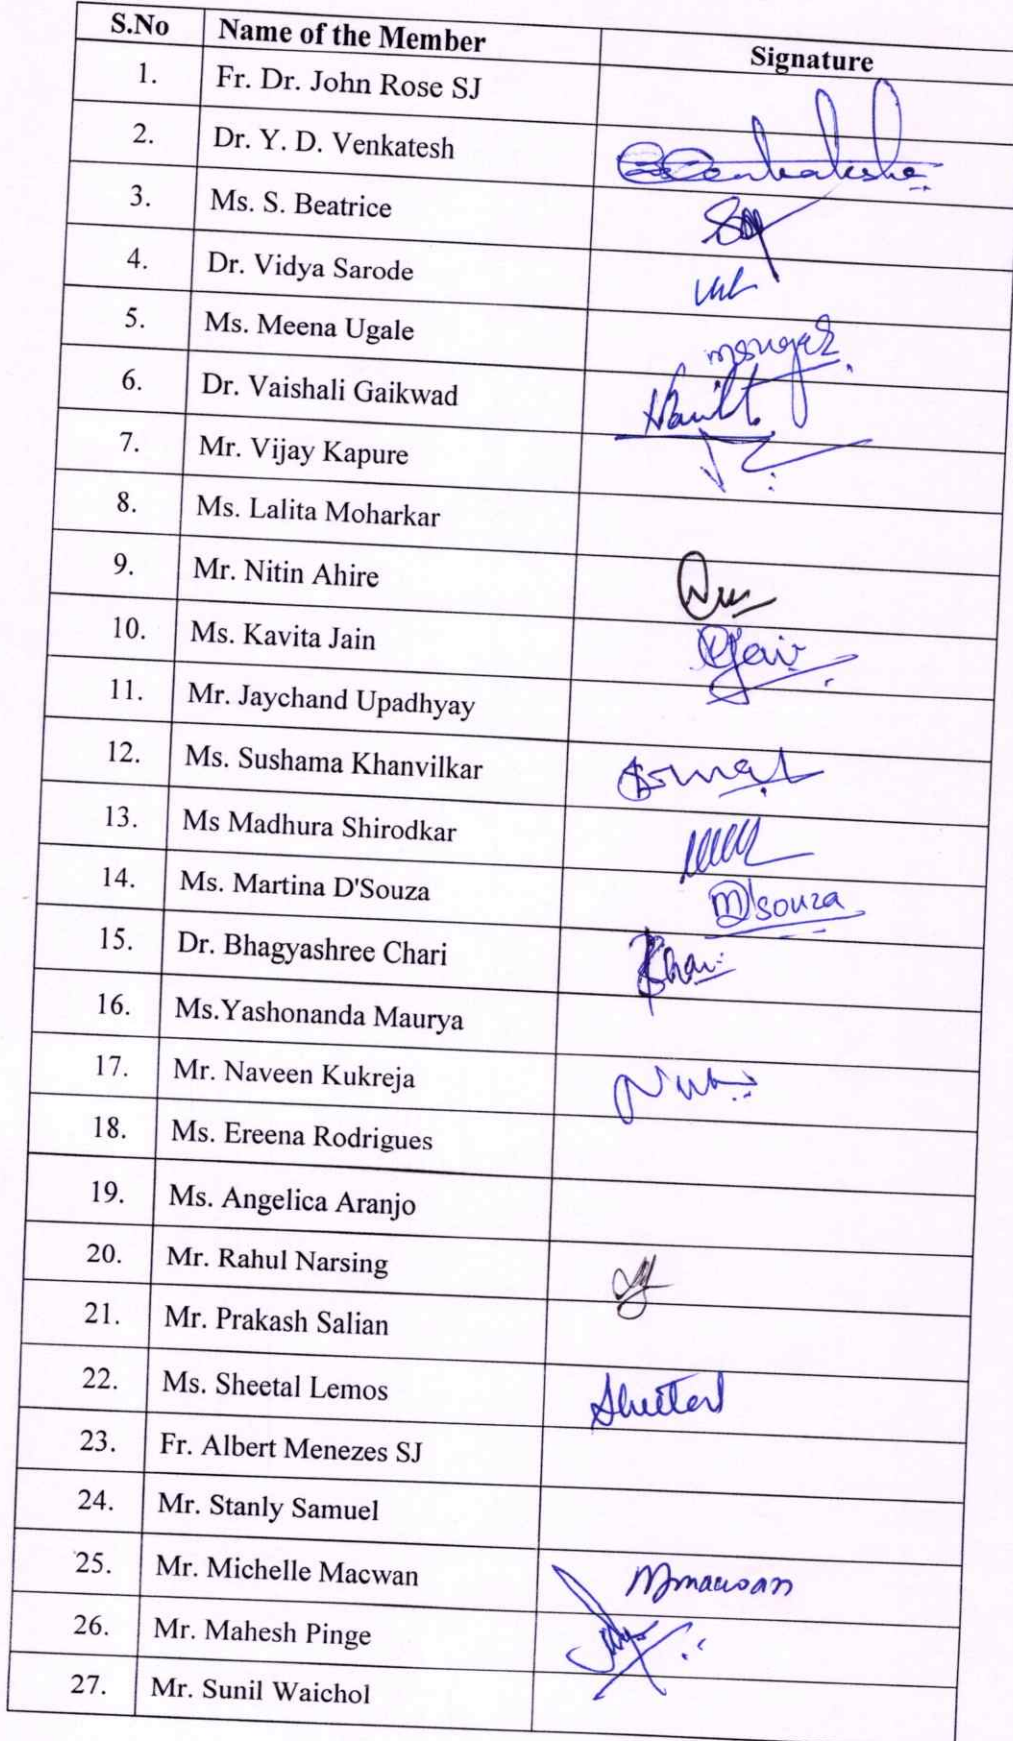 S.No Name of the Member Signature
1. Fr. Dr. John Rose SJ
2. Dr. Y. D. Venkatesh
3. Ms. S. Beatrice
4. Dr. Vidya Sarode
5. Ms. Meena Ugale
6. Dr. Vaishali Gaikwad
7. Mr. Vijay Kapure
8. Ms. Lalita Moharkar
9. Mr. Nitin Ahire
10. Ms. Kavita Jain
11. Mr. Jaychand Upadhyay
12. Ms. Sushama Khanvilkar
13. Ms Madhura Shirodkar
14. Ms. Martina D'Souza D'souza
15. Dr. Bhagyashree Chari
16. Ms.Yashonanda Maurya
17. Mr. Naveen Kukreja
18. Ms. Ereena Rodrigues
19. Ms. Angelica Aranjo
20. Mr. Rahul Narsing
21. Mr. Prakash Salian
22. Ms. Sheetal Lemos
23. Fr. Albert Menezes SJ
24. Mr. Stanly Samuel
25. Mr. Michelle Macwan
26. Mr. Mahesh Pinge
27. Mr. Sunil Waichol